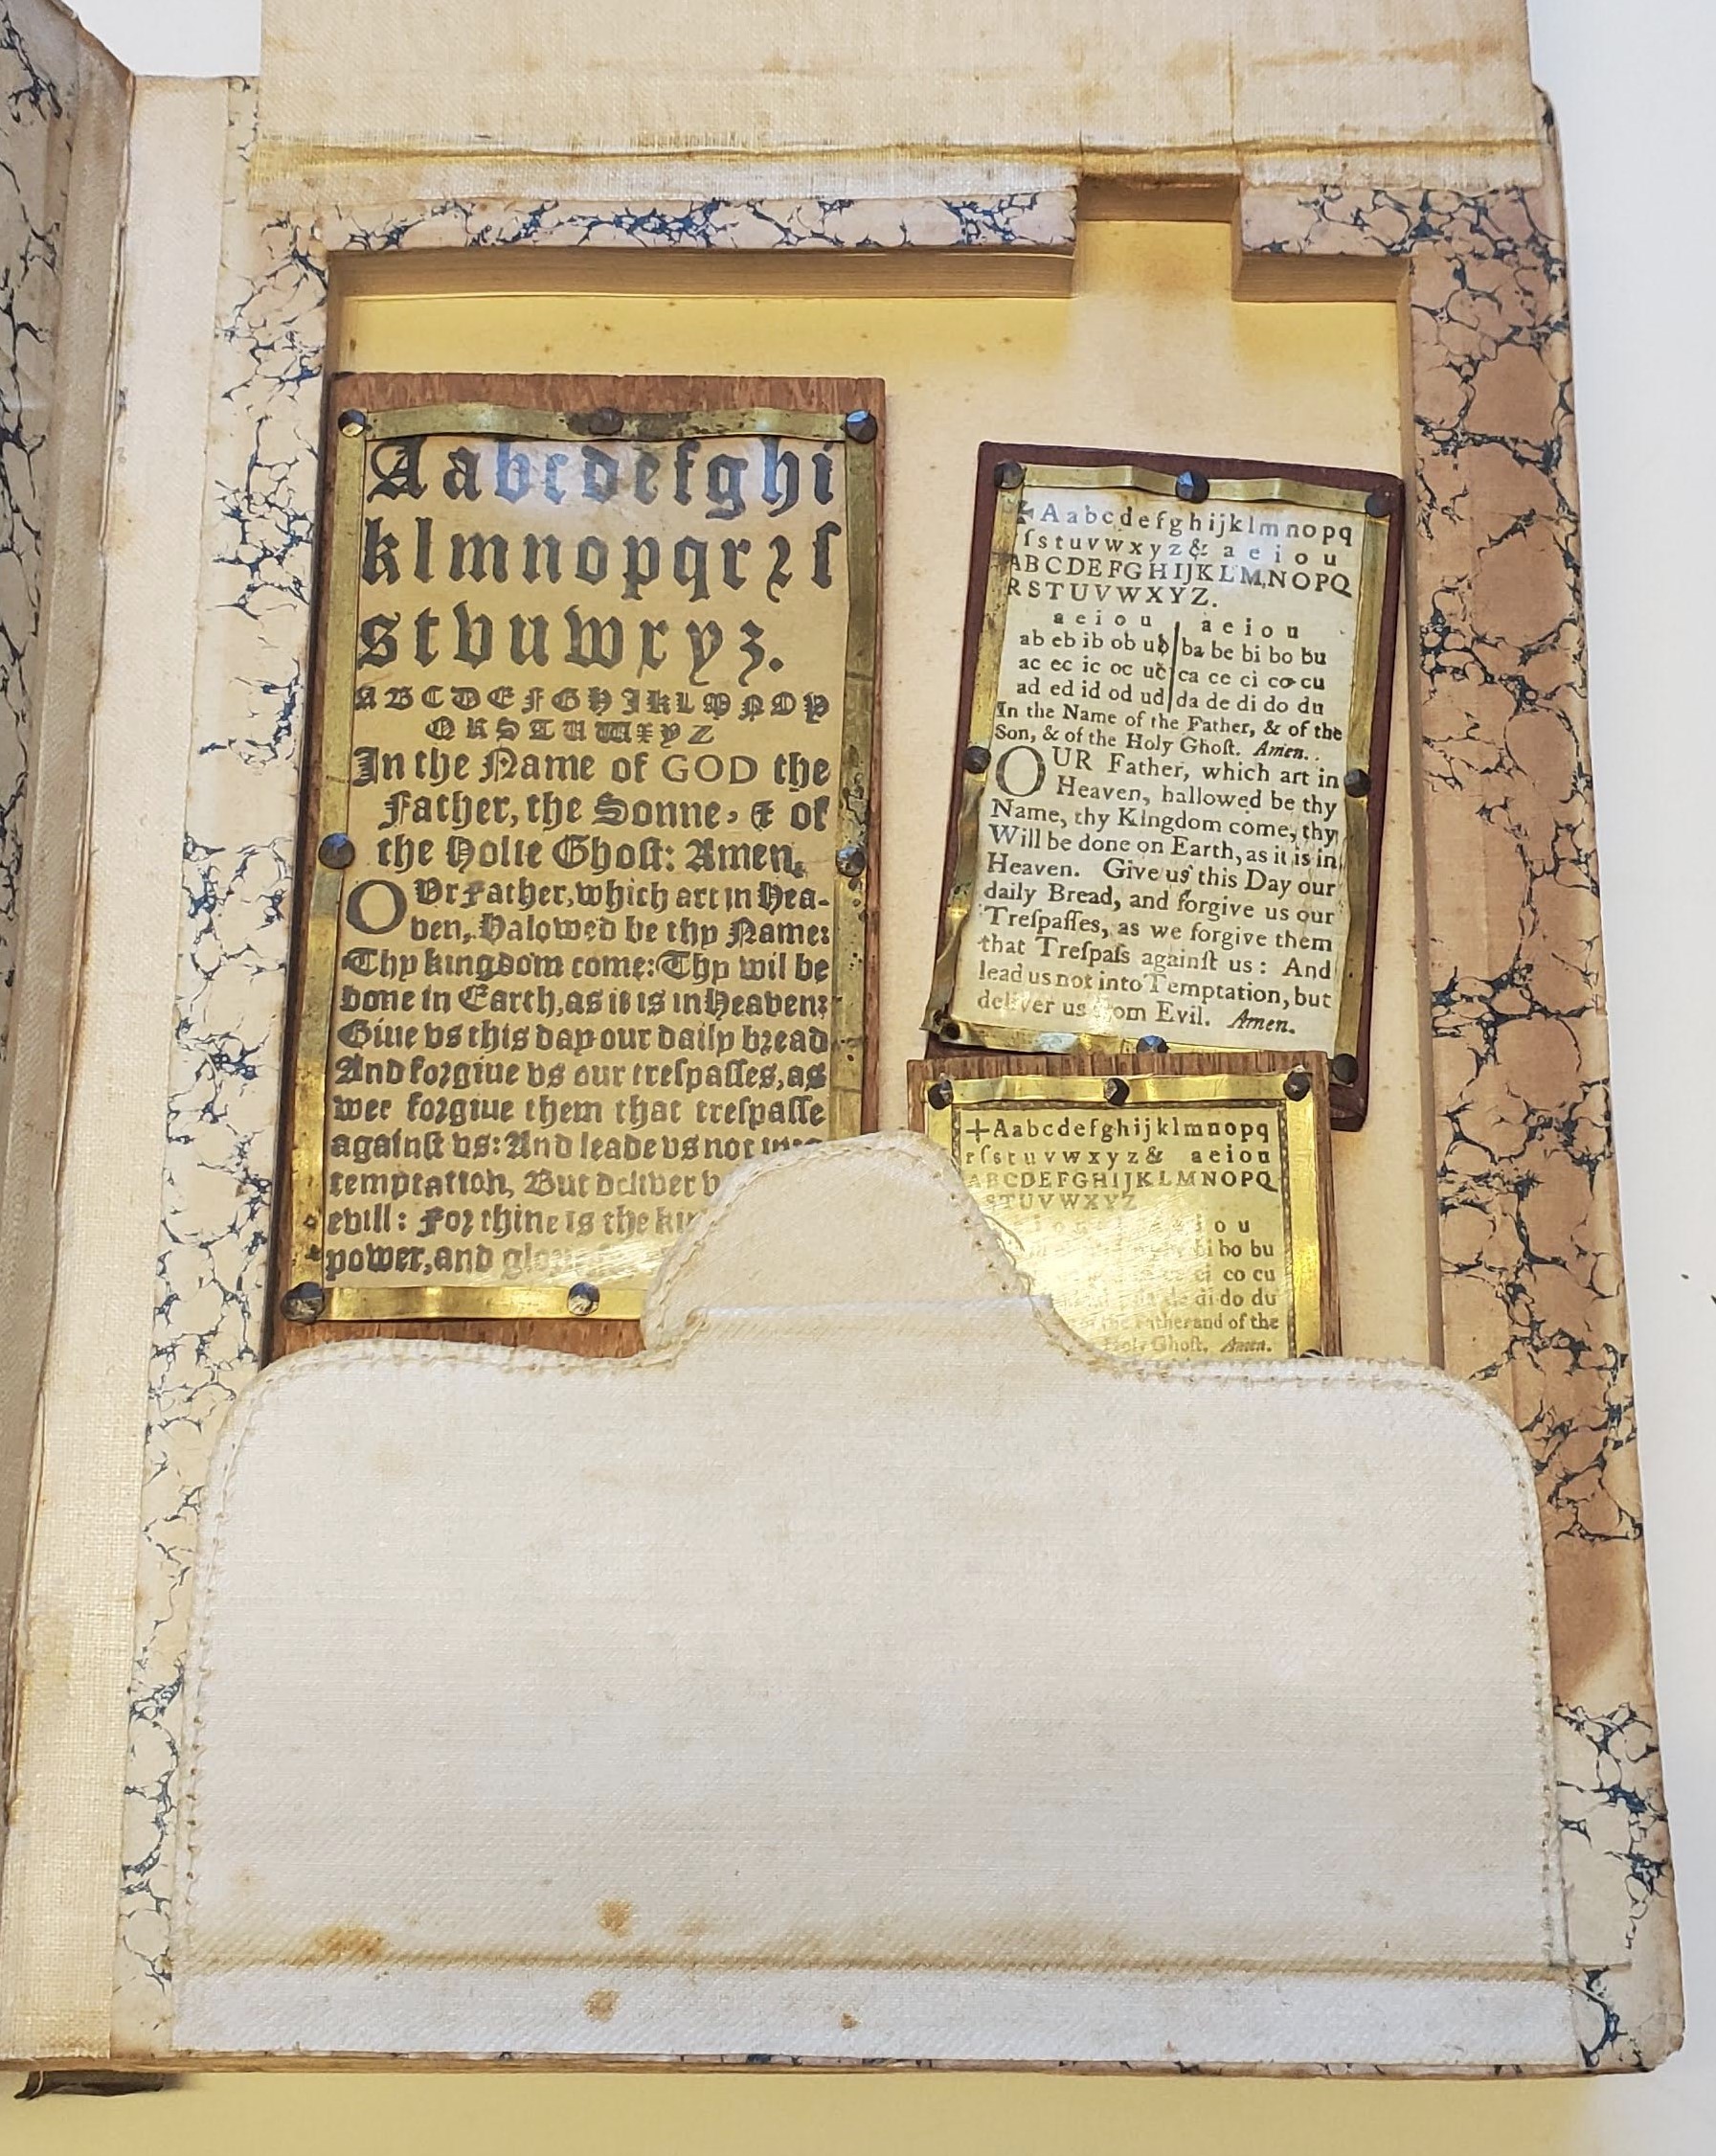 A a b c d e f g h i
k l m n o p q r ꝛ ſ
s t v u w x y z.
A B C D E F G H I K L M N O P
Q R S T U W X Y Z
In the Name of GOD the
Father, the Sonne, & of
the Holie Ghoſt: Amen.
OUr Father, which art in Hea-
ven, Halowed be thy Name:
Thy kingdom come: Thy wil be
done in Earth, as it is in Heaven:
Giue vs this day our daily bꝛead
And foꝛgiue vs our treſpaſſes, as
wee foꝛgiue them that treſpaſſe
againſt vs: And leade vs not
temptation, But deliver
evill: Foꝛ thine is the
power, and
✠ A a b c d e f g h i j k l m n o p q
r ſ s t u v w x y z & a e i o u
A B C D E F G H I J K L M N O P Q
R S T U V W X Y Z.
a e i o u a e i o u
ab eb ib ob ub ba be bi bo bu
ac ec ic oc uc ca ce ci co cu
ad ed id od ud da de di do du
In the Name of the Father, & of the
Son, & of the Holy Ghoſt. Amen.
OUR Father, which art in
Heaven, hallowed be thy
Name, thy Kingdom come, thy
Will be done on Earth, as it is in
Heaven. Give us this Day our
daily Bread, and forgive us our
Treſpaſſes, as we forgive them
that Treſpaſs againſt us: And
lead us not into Temptation, but
deliver us from Evil. Amen.
+ A a b c d e f g h i j k l m n o p q
r ſ s t u v w x y z & a e i o u
A B C D E F G H I J K L M N O P Q
S T U V W X Y Z
i o u
bi bo bu
ci co cu
de di do du
the Father and of the
Holy Ghoſt. Amen.